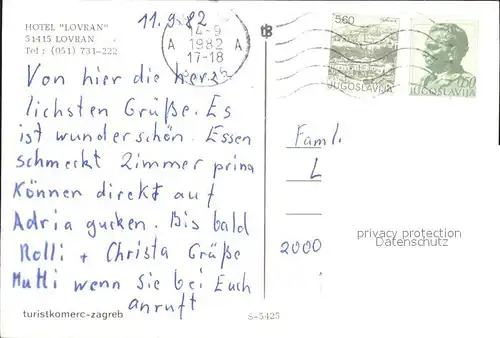 HOTEL "LOVRAN"
51415 LOVRAN
Tel : (051) 731-222
11.9.82
14-9
A 1982 A
17-18
5.60
JUGOSLAVIJA
0.50
JUGOSLAVIJA
Von hier die herz
lichsten Grüße. Es
ist wunderschön. Essen
schmeckt Zimmer prima
Können direkt auf
Adria gucken. Bis bald
Rolli + Christa Grüße
Mutti wenn sie bei Euch
anruft
Faml.
L
2000
privacy protection
Datenschutz
turistkomerc-zagreb
S-5425